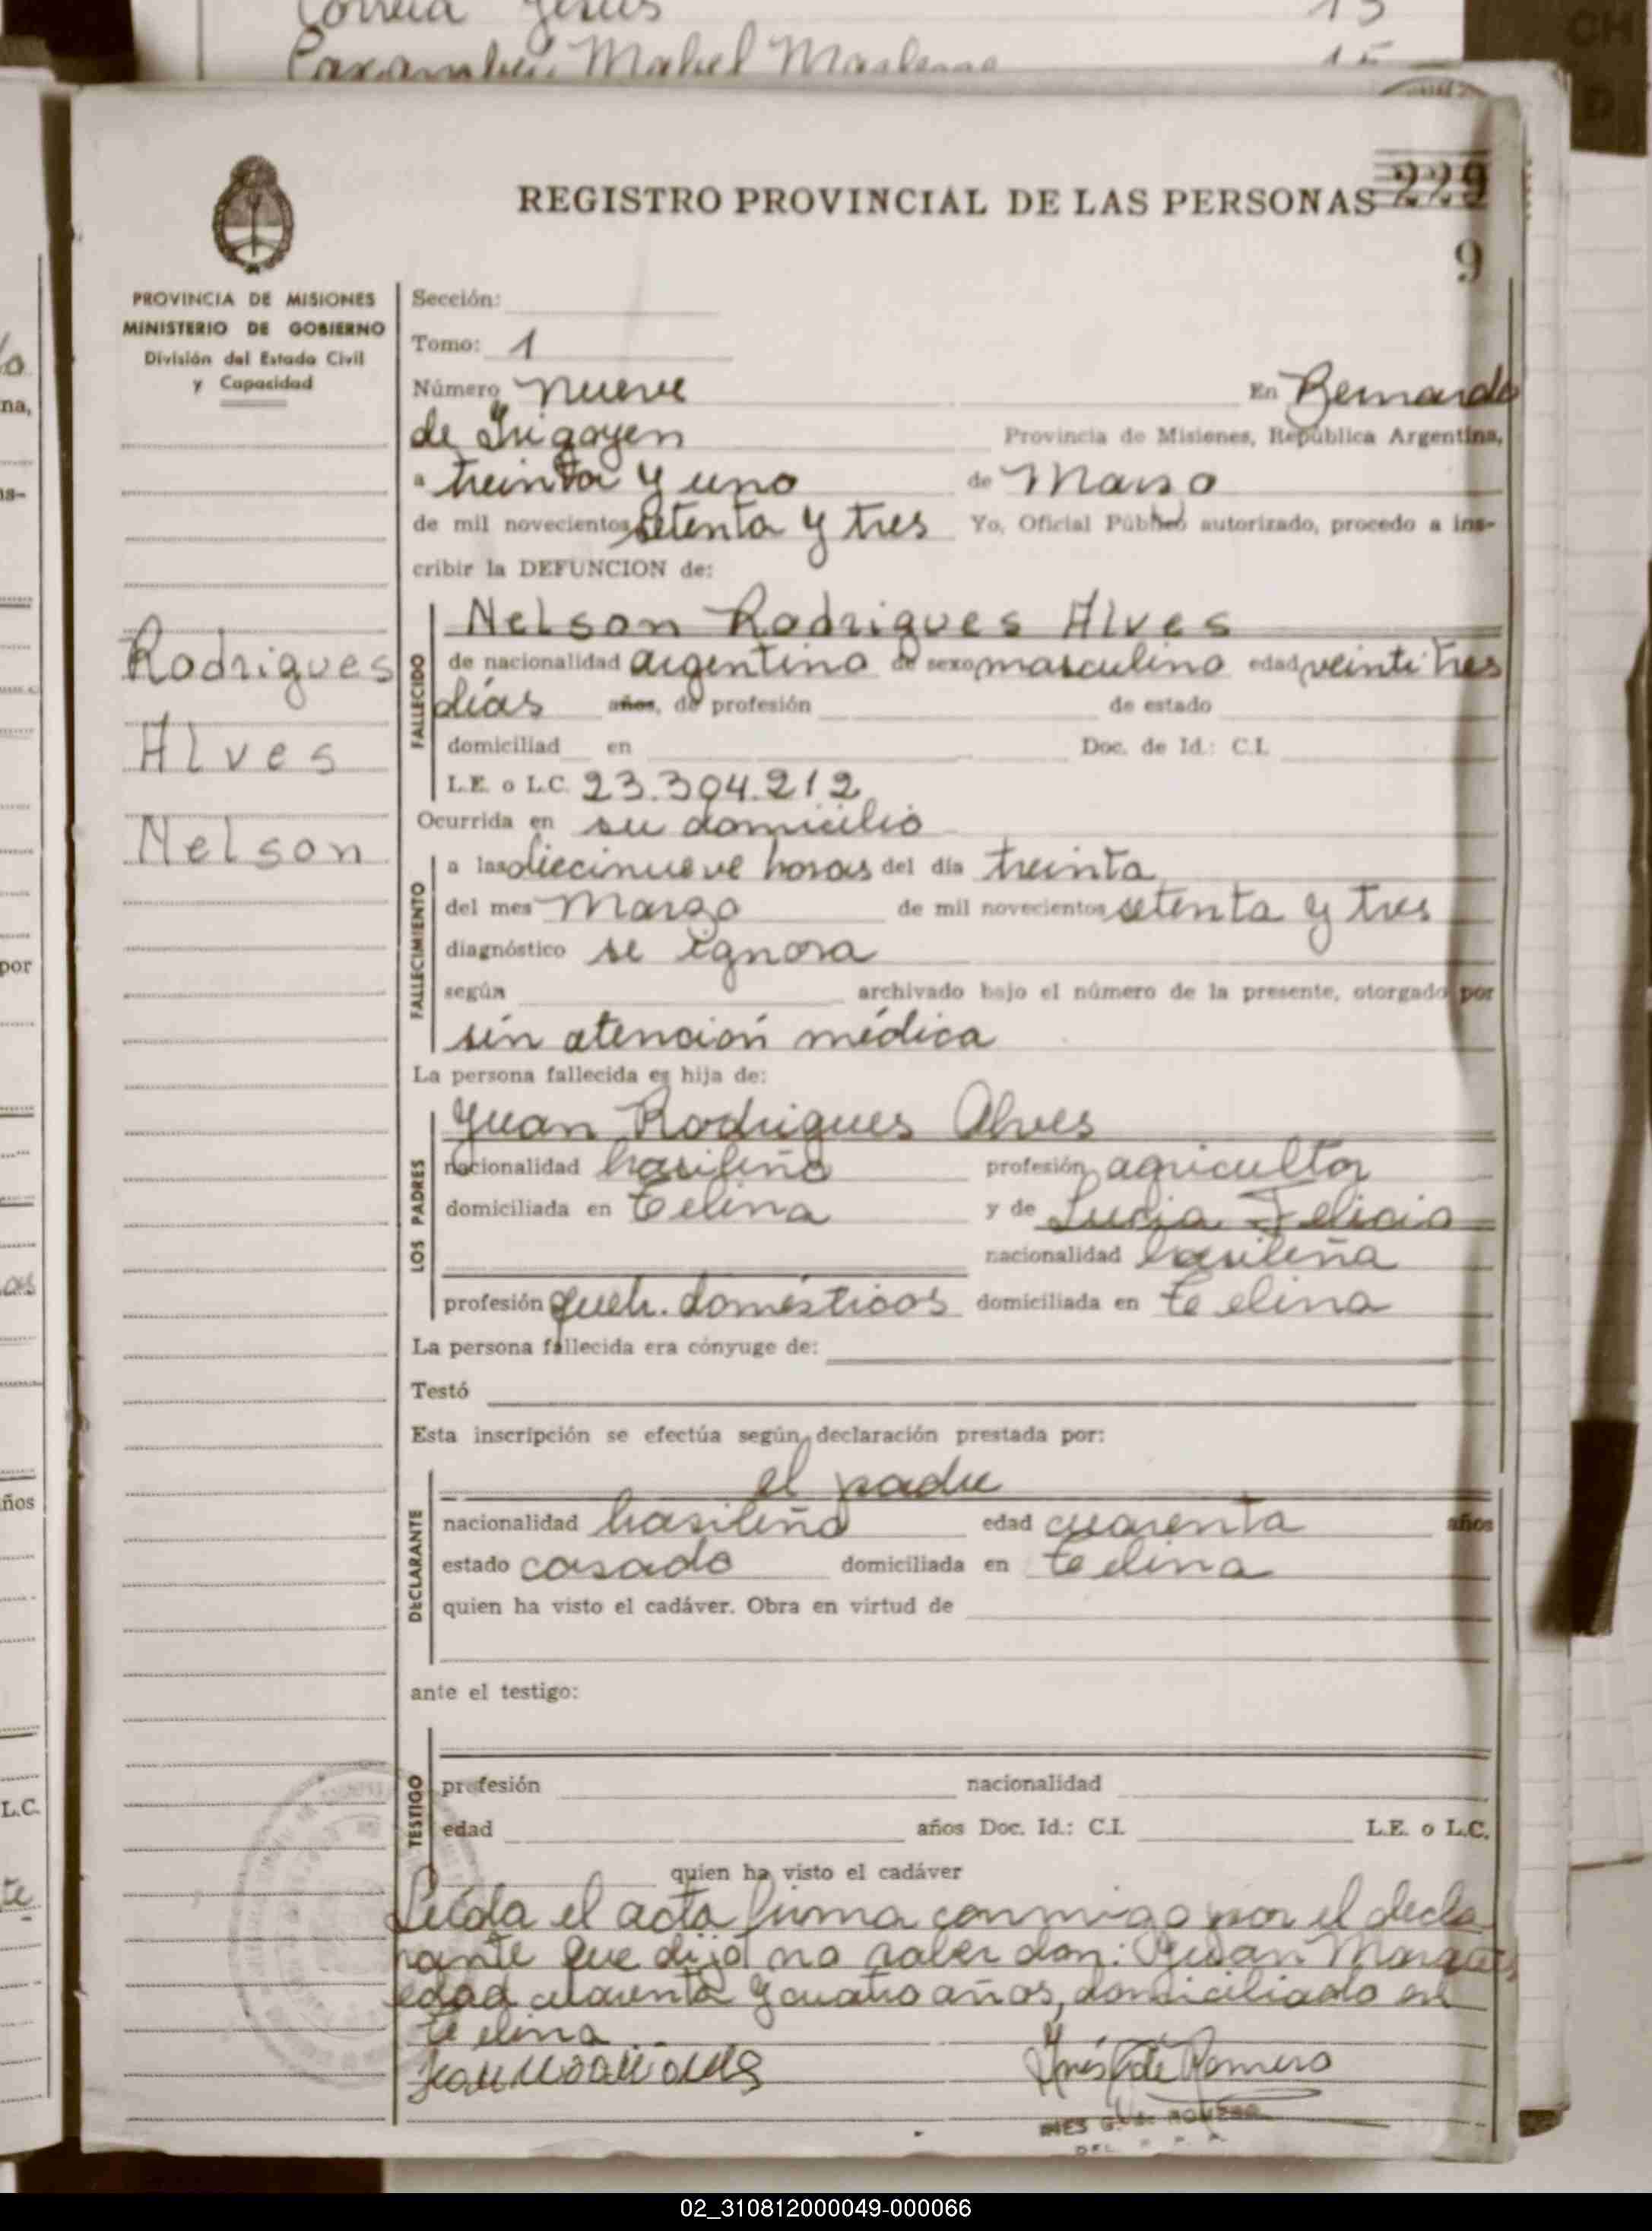 Correia Jesus 15
Mabel Marlene 15
229
REGISTRO PROVINCIAL DE LAS PERSONAS
9
PROVINCIA DE MISIONES
MINISTERIO DE GOBIERNO
División del Estado Civil
y Capacidad
Rodrigues
Alves
Nelson
Sección:
Tomo: 1
Número nueve En Bernardo
de Irigoyen Provincia de Misiones, República Argentina,
a treinta y uno de Marzo
de mil novecientos setenta y tres Yo, Oficial Público autorizado, procedo a ins-
cribir la DEFUNCION de:
FALLECIDO
Nelson Rodrigues Alves
de nacionalidad argentino de sexo masculino edad veinti tres
días años, de profesión de estado
domiciliad en Doc. de Id.: C.I.
L.E. o L.C. 23.304.212
Ocurrida en su domicilio
FALLECIMIENTO
a las diecinueve horas del día treinta
del mes Marzo de mil novecientos setenta y tres
diagnóstico se ignora
según archivado bajo el número de la presente, otorgado por
sin atención médica
La persona fallecida es hija de:
LOS PADRES
Juan Rodrigues Alves
nacionalidad brasileño profesión agricultor
domiciliada en y de Lucia Felicio
nacionalidad brasileña
profesión queh. domésticos domiciliada en
La persona fallecida era cónyuge de:
Testó
Esta inscripción se efectúa según declaración prestada por:
DECLARANTE
el padre
nacionalidad brasileño edad cuarenta años
estado casado domiciliada en
quien ha visto el cadáver. Obra en virtud de
ante el testigo:
TESTIGO
profesión nacionalidad
edad años Doc. Id.: C.I. L.E. o L.C.
quien ha visto el cadáver
Leída el acta firma conmigo por el decla
rante que dijo no saber don: Juan
edad cuarenta y cuatro años, domiciliado en
Inés G. de Romero
INES G. de ROMERO
02_310812000049-000066